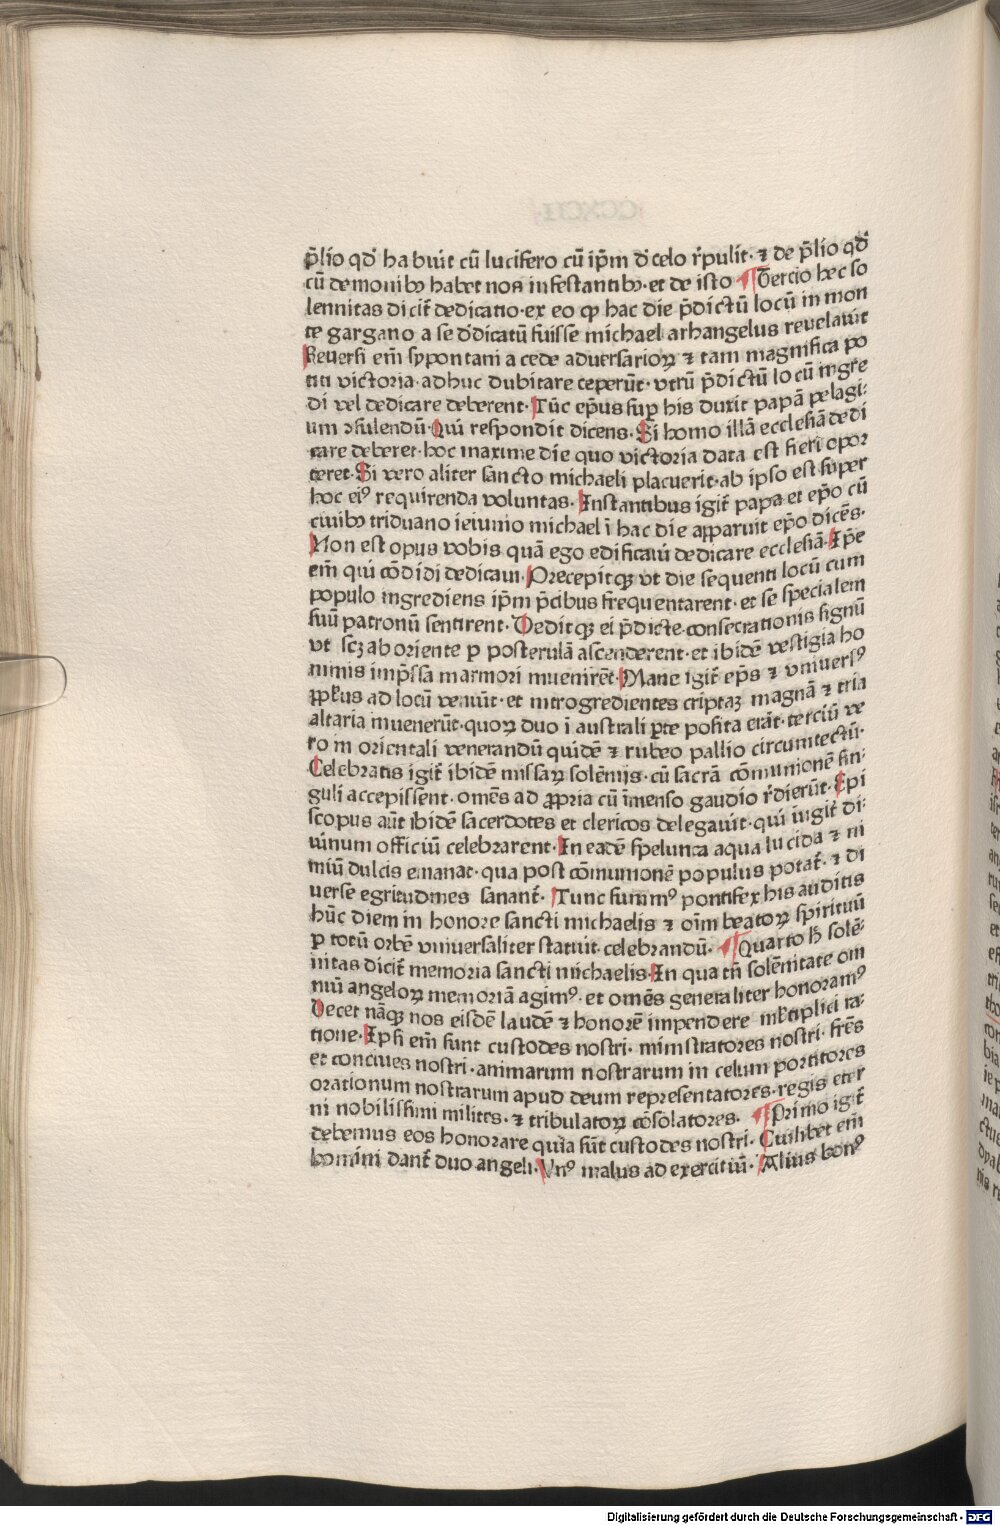 p̄lio qd̕ habuit cū lucifero cū ip̄m d̕ celo r̕pulit· ⁊ de p̄lio qd̕
cū demonibꝰ habet nos infestantibꝰ·et de isto ¶Tercio hec so
lennitas dicit̕ dedicatio·ex eo ꝙ hac die p̄dictū locū in mon
te gargano a se d̕dicatū fuisse michael arhangelus reuelauit
Reuersi em̄ sypontani a cede aduersarioꝝ ⁊ tam magnifica po
titi victoria·adhuc dubitare ceperūt·vtrū p̄dictū locū ingre
di vel dedicare deberent·Tūc ep̄us suꝑ his duxit papā pelagi:
um ↄsulendū·Qui respondit dicens·Si homo illā ecclesiā dedi
care deberet·hoc maxime die quo victoria data est fieri opor
teret·Si vero aliter sancto michaeli placuerit·ab ipso est super
hoc eiꝰ requirenda voluntas·Instantibus igit̕ papa et ep̄o cū
ciuibꝰ triduano ieiunio michael ī hac die apparuit ep̄o dicēs·
Non est opus vobis quā ego edificaui dedicare ecclesiā·Ip̄e
em̄ qui cōdidi dedicaui·Precepitqꝫ vt die sequenti locū cum
populo ingrediens ip̄m p̄cibus frequentarent·et se specialem
suū patronū sentirent·Deditqꝫ ei p̄dicte consecrationis signū
vt scꝫ ab oriente ꝑ posterulā ascenderent·et ibidē vestigia ho
minis imp̄ssa marmori inuenirēt·Mane igit̕ ep̄s ⁊ vniuersꝰ
pp̄lus ad locū veniūt·et introgredientes criptaꝫ magnā ⁊ tria
altaria inuenerūt·quoꝝ duo ī australi ꝑte posita erāt·terciū ve
ro in orientali venerandū quidē ⁊ rubeo pallio circumtectū·
Celebratis igit̕ ibidē missaꝝ solēnijs·cū sacrā cōmunionē sin-
guli accepissent·omēs ad ꝓpria cū īmenso gaudio r̕dierūt·Epi
scopus aūt ibidē sacerdotes et clericos delegauit·qui iugit̕ di:
uinum officiū celebrarent·In eadē spelunca aqua lucida ⁊ ni
miū dulcis emanat·qua post cōmunionē populus potat̕·⁊ di
uerse egritudines sanant̕·Tunc summꝰ pontifex his auditis
hūc diem in honore sancti michaelis ⁊ oīm beatoꝝ spirituū
ꝑ totū orbē vniuersaliter statuit celebrandū·¶Quarto h̕ solē-
nitas dicit̕ memoria sancti michaelis·In qua tn̄ solēnitate om
niū angeloꝝ memoriā agimꝰ·et omēs generaliter honoramꝰ
Decet nāqꝫ nos eisdē laudē ⁊ honorē impendere ml̕tiplici ra:
tione·Ipsi em̄ sunt custodes nostri·ministratores nostri·frēs
et conciues nostri·animarum nostrarum in celum portitores
orationum nostrarum apud deum representatores·regis eter
ni nobilissimi milites·⁊ tribulatoꝝ cōsolatores·¶Primo igit̕
debemus eos honorare quia sūt custodes nostri·Cuilibet em̄
homini dant̕ duo angeli·Vnꝰ malus ad exercitiū·Alius bonꝰ
Digitalisierung gefördert durch die Deutsche Forschungsgemeinschaft - DFG